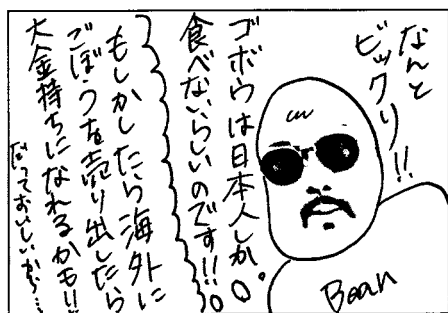 なんと
ビックリ!!
ゴボウは日本人しか
食べないらしいのです!!
もしかしたら海外に
ごぼうを売り出したら
大金持ちになれるかも!!
だっておいしいから…
Bean